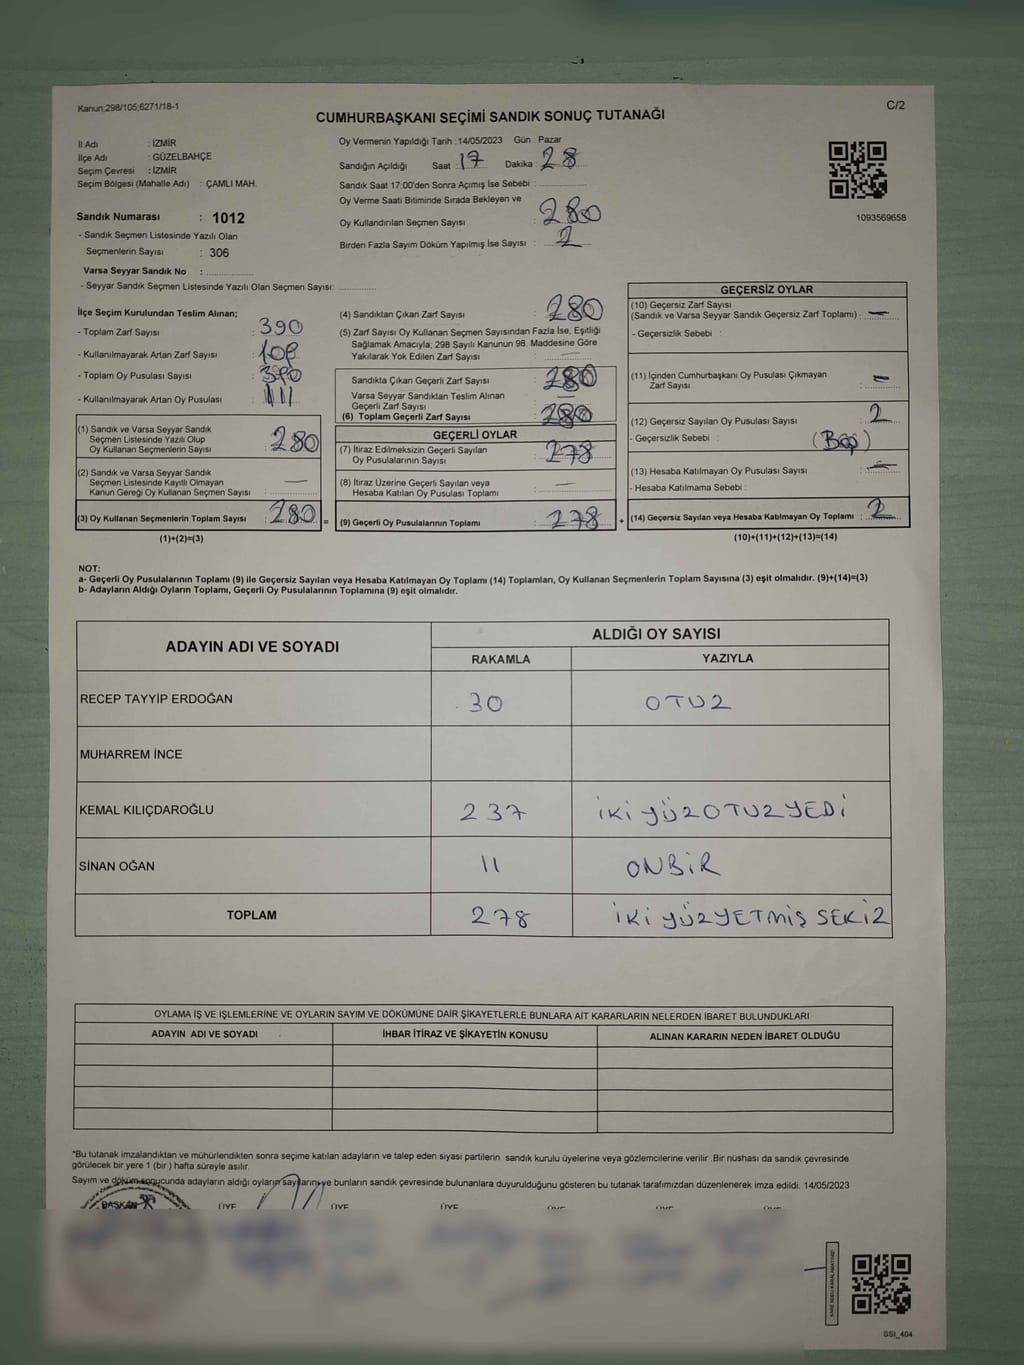 Kanun;298/105;6271/18-1
C/2
CUMHURBAŞKANI SEÇİMİ SANDIK SONUÇ TUTANAĞI
İl Adı : İZMİR
İlçe Adı : GÜZELBAHÇE
Seçim Çevresi : İZMİR
Seçim Bölgesi (Mahalle Adı) : ÇAMLI MAH.
Sandık Numarası : 1012
- Sandık Seçmen Listesinde Yazılı Olan
Seçmenlerin Sayısı : 306
Varsa Seyyar Sandık No :
- Seyyar Sandık Seçmen Listesinde Yazılı Olan Seçmen Sayısı:
Oy Vermenin Yapıldığı Tarih : 14/05/2023 Gün : Pazar
Sandığın Açıldığı Saat : 17 Dakika : 28
Sandık Saat 17:00'den Sonra Açımış İse Sebebi :
Oy Verme Saati Bitiminde Sırada Bekleyen ve
Oy Kullandırılan Seçmen Sayısı : 280
Birden Fazla Sayım Döküm Yapılmış İse Sayısı : 2
1093569658
İlçe Seçim Kurulundan Teslim Alınan;
- Toplam Zarf Sayısı : 390
- Kullanılmayarak Artan Zarf Sayısı :
- Toplam Oy Pusulası Sayısı : 390
- Kullanılmayarak Artan Oy Pusulası :
(1) Sandık ve Varsa Seyyar Sandık
Seçmen Listesinde Yazılı Olup
Oy Kullanan Seçmenlerin Sayısı : 280
(2) Sandık ve Varsa Seyyar Sandık
Seçmen Listesinde Kayıtlı Olmayan
Kanun Gereği Oy Kullanan Seçmen Sayısı : —
(3) Oy Kullanan Seçmenlerin Toplam Sayısı : 280
(1)+(2)=(3)
=
(4) Sandıktan Çıkan Zarf Sayısı : 280
(5) Zarf Sayısı Oy Kullanan Seçmen Sayısından Fazla İse, Eşitliği
Sağlamak Amacıyla; 298 Sayılı Kanunun 98. Maddesine Göre
Yakılarak Yok Edilen Zarf Sayısı : —
Sandıkta Çıkan Geçerli Zarf Sayısı : 280
Varsa Seyyar Sandıktan Teslim Alınan
Geçerli Zarf Sayısı : —
(6) Toplam Geçerli Zarf Sayısı : 280
GEÇERLİ OYLAR
(7) İtiraz Edilmeksizin Geçerli Sayılan
Oy Pusulalarının Sayısı : 278
(8) İtiraz Üzerine Geçerli Sayılan veya
Hesaba Katılan Oy Pusulası Toplamı : —
(9) Geçerli Oy Pusulalarının Toplamı : 278
+
GEÇERSİZ OYLAR
(10) Geçersiz Zarf Sayısı
(Sandık ve Varsa Seyyar Sandık Geçersiz Zarf Toplamı) : —
- Geçersizlik Sebebi :
(11) İçinden Cumhurbaşkanı Oy Pusulası Çıkmayan
Zarf Sayısı : —
(12) Geçersiz Sayılan Oy Pusulası Sayısı : 2
- Geçersizlik Sebebi : (Boş)
(13) Hesaba Katılmayan Oy Pusulası Sayısı : —
- Hesaba Katılmama Sebebi :
(14) Geçersiz Sayılan veya Hesaba Katılmayan Oy Toplamı : 2
(10)+(11)+(12)+(13)=(14)
NOT:
a- Geçerli Oy Pusulalarının Toplamı (9) ile Geçersiz Sayılan veya Hesaba Katılmayan Oy Toplamı (14) Toplamları, Oy Kullanan Seçmenlerin Toplam Sayısına (3) eşit olmalıdır. (9)+(14)=(3)
b- Adayların Aldığı Oyların Toplamı, Geçerli Oy Pusulalarının Toplamına (9) eşit olmalıdır.
ADAYIN ADI VE SOYADI
ALDIĞI OY SAYISI
RAKAMLA YAZIYLA
RECEP TAYYİP ERDOĞAN 30 OTUZ
MUHARREM İNCE
KEMAL KILIÇDAROĞLU 237 İKİ YÜZ OTUZ YEDİ
SİNAN OĞAN 11 ONBİR
TOPLAM 278 İKİ YÜZ YETMİŞ SEKİZ
OYLAMA İŞ VE İŞLEMLERİNE VE OYLARIN SAYIM VE DÖKÜMÜNE DAİR ŞİKAYETLERLE BUNLARA AİT KARARLARIN NELERDEN İBARET BULUNDUKLARI
ADAYIN ADI VE SOYADI İHBAR İTİRAZ VE ŞİKAYETİN KONUSU ALINAN KARARIN NEDEN İBARET OLDUĞU
*Bu tutanak imzalandıktan ve mühürlendikten sonra seçime katılan adayların ve talep eden siyasi partilerin sandık kurulu üyelerine veya gözlemcilerine verilir .Bir nüshası da sandık çevresinde
görülecek bir yere 1 (bir ) hafta süreyle asılır.
Sayım ve döküm sonucunda adayların aldığı oyların sayılarını ve bunların sandık çevresinde bulunanlara duyurulduğunu gösteren bu tutanak tarafımızdan düzenlenerek imza edildi. 14/05/2023
BAŞKAN ÜYE ÜYE ÜYE ÜYE ÜYE ÜYE
SSI_404